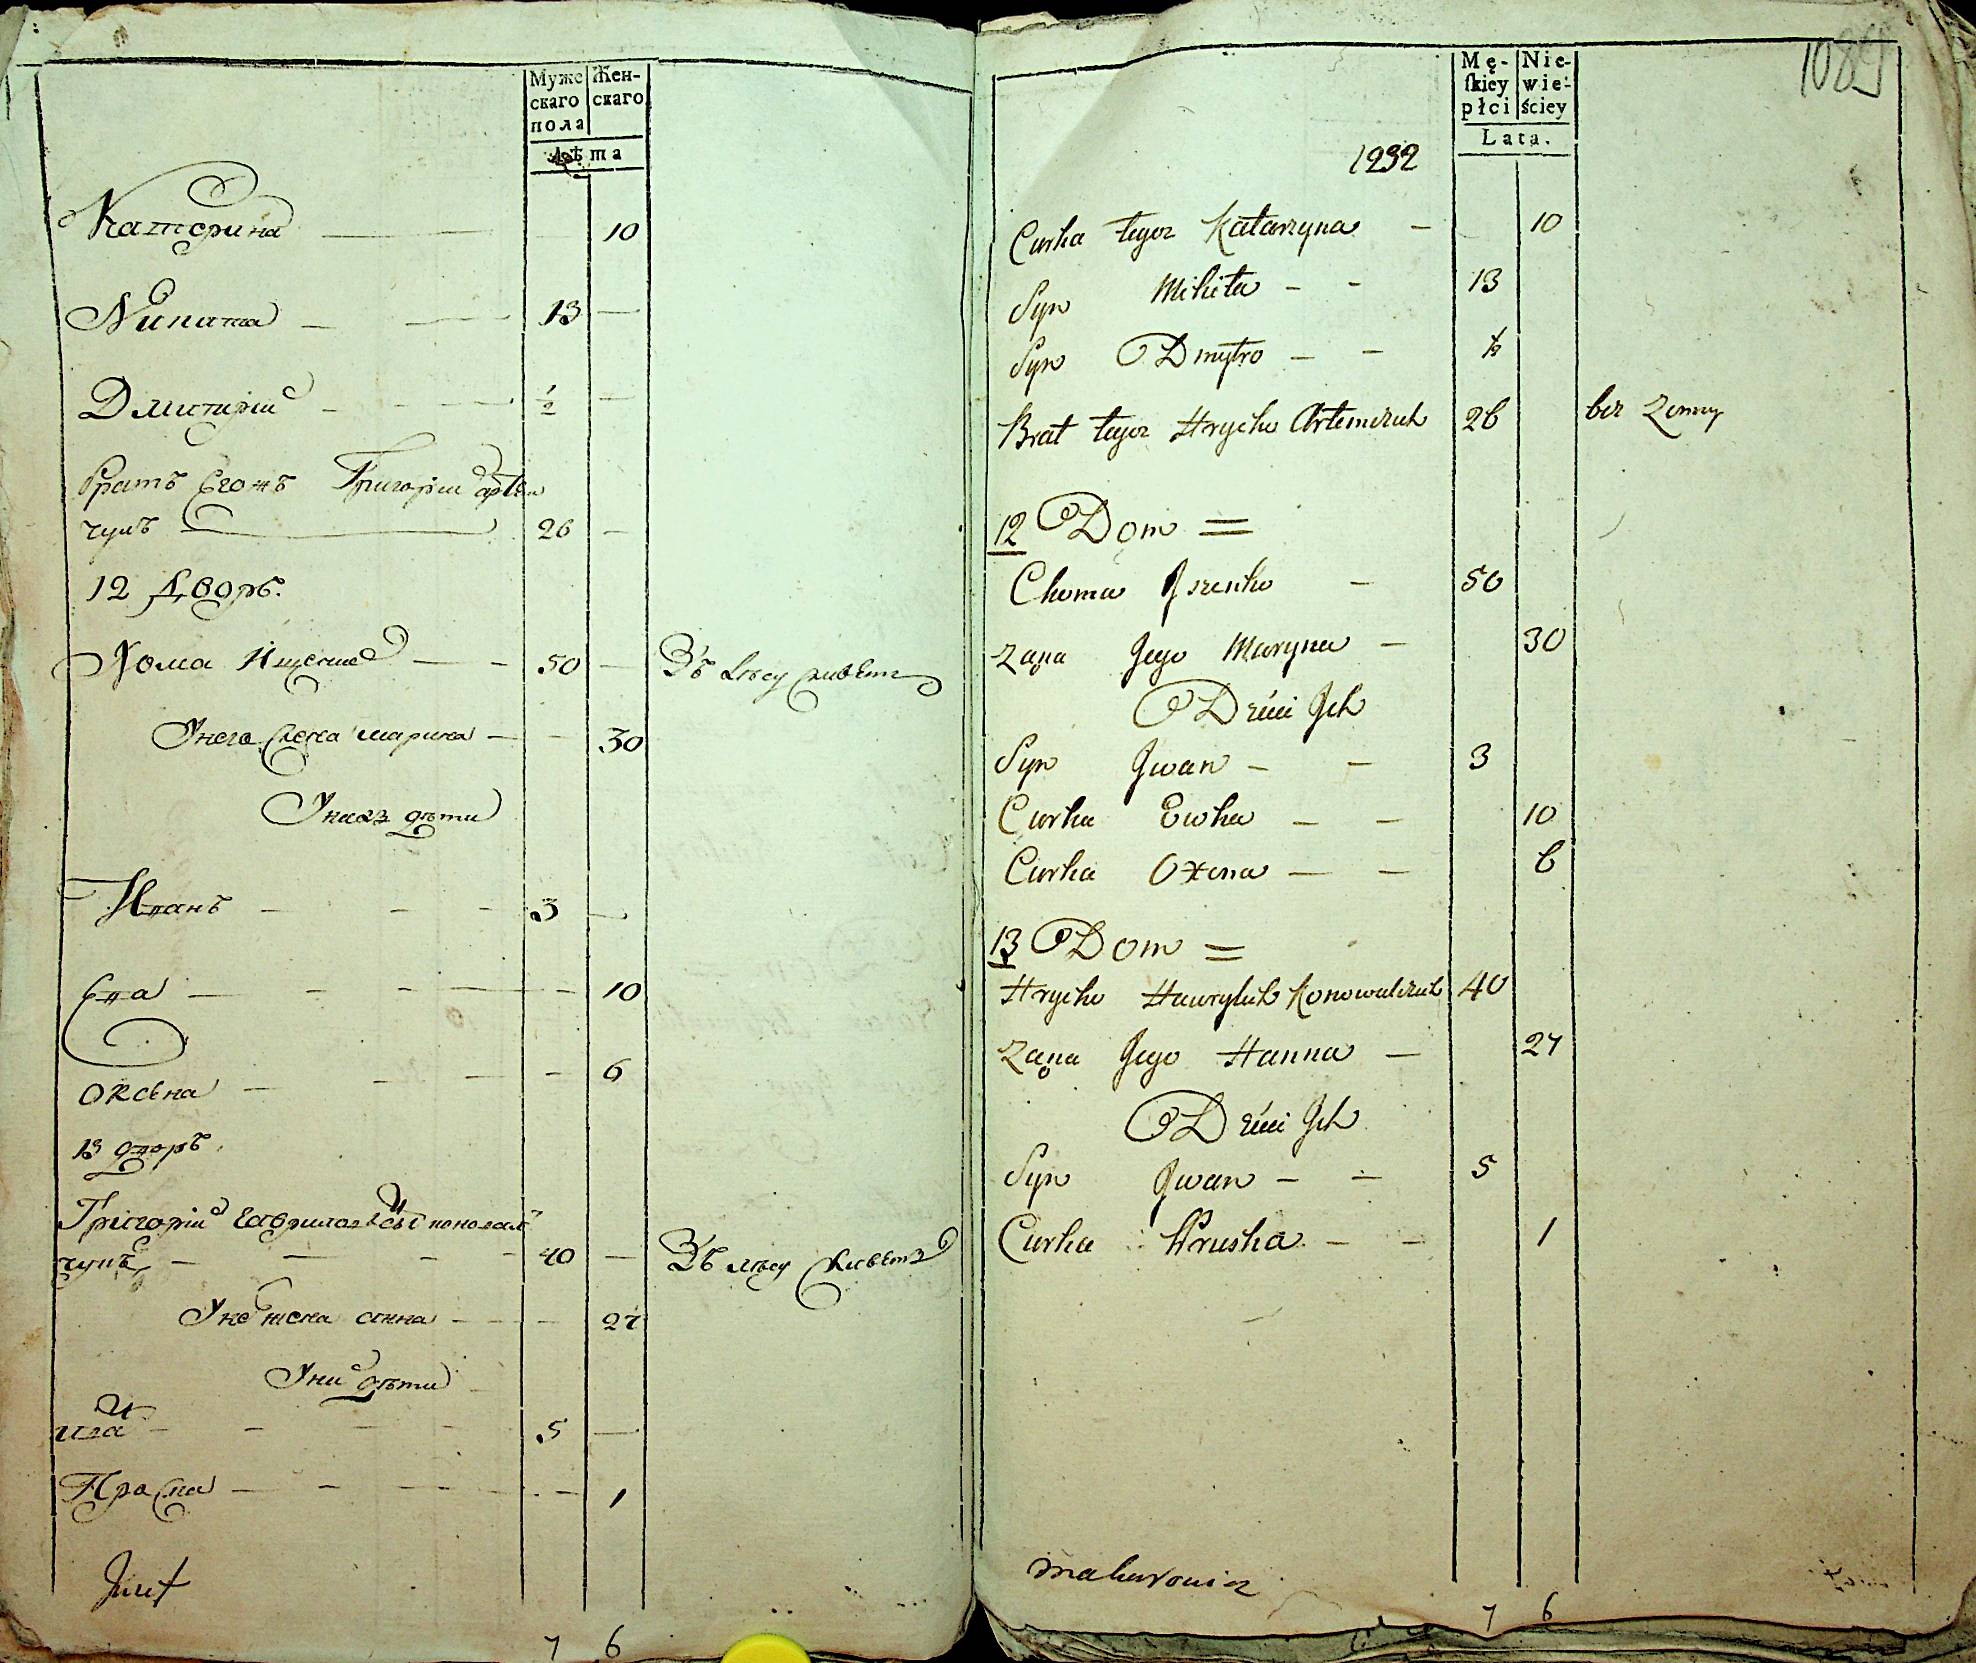 Муже Жен-
скаго скаго
пола
Лѣта
Катерина 10
Никита — 13 —
Дмитрій — ½ —
братъ Егожъ Григорій артем
чукъ — 26 —
12 дворъ.
Хома Ищенко — 50 —
Унего жена марина — 30
Унихъ дѣти
Иванъ — 3 —
Ева — 10
Оксена — 6
13 дворъ.
Григорій Гавриловъ
чукъ — 40 —
Уне жена анна — 27
Уни дѣти
5 —
Праска — 1
Juzef
7 6
1089
Mę- Nie-
ſkiey wie-
płci ściey
Lata.
1292
Curka tegoz Katarzyna — 10
Syn Mikita — — 13
Syn Dmytro — — ½
Brat tegoz Hrycko Artemczuk 26 bez Zonny
12 Dom =
Choma Iszenko — 50
Ząna Jego Maryna — 30
Dzieci Ich
Syn Jwan — — 3
Curka Ewka — — 10
Curka Oxena — — 6
13 Dom =
Hrycko Hawryluk Konowalczuk 40
Ząna Jego Hanna — 27
Dzieci Ich
Syn Jwan — — 5
Curka Pruska — — 1
Makarowicz
7 6